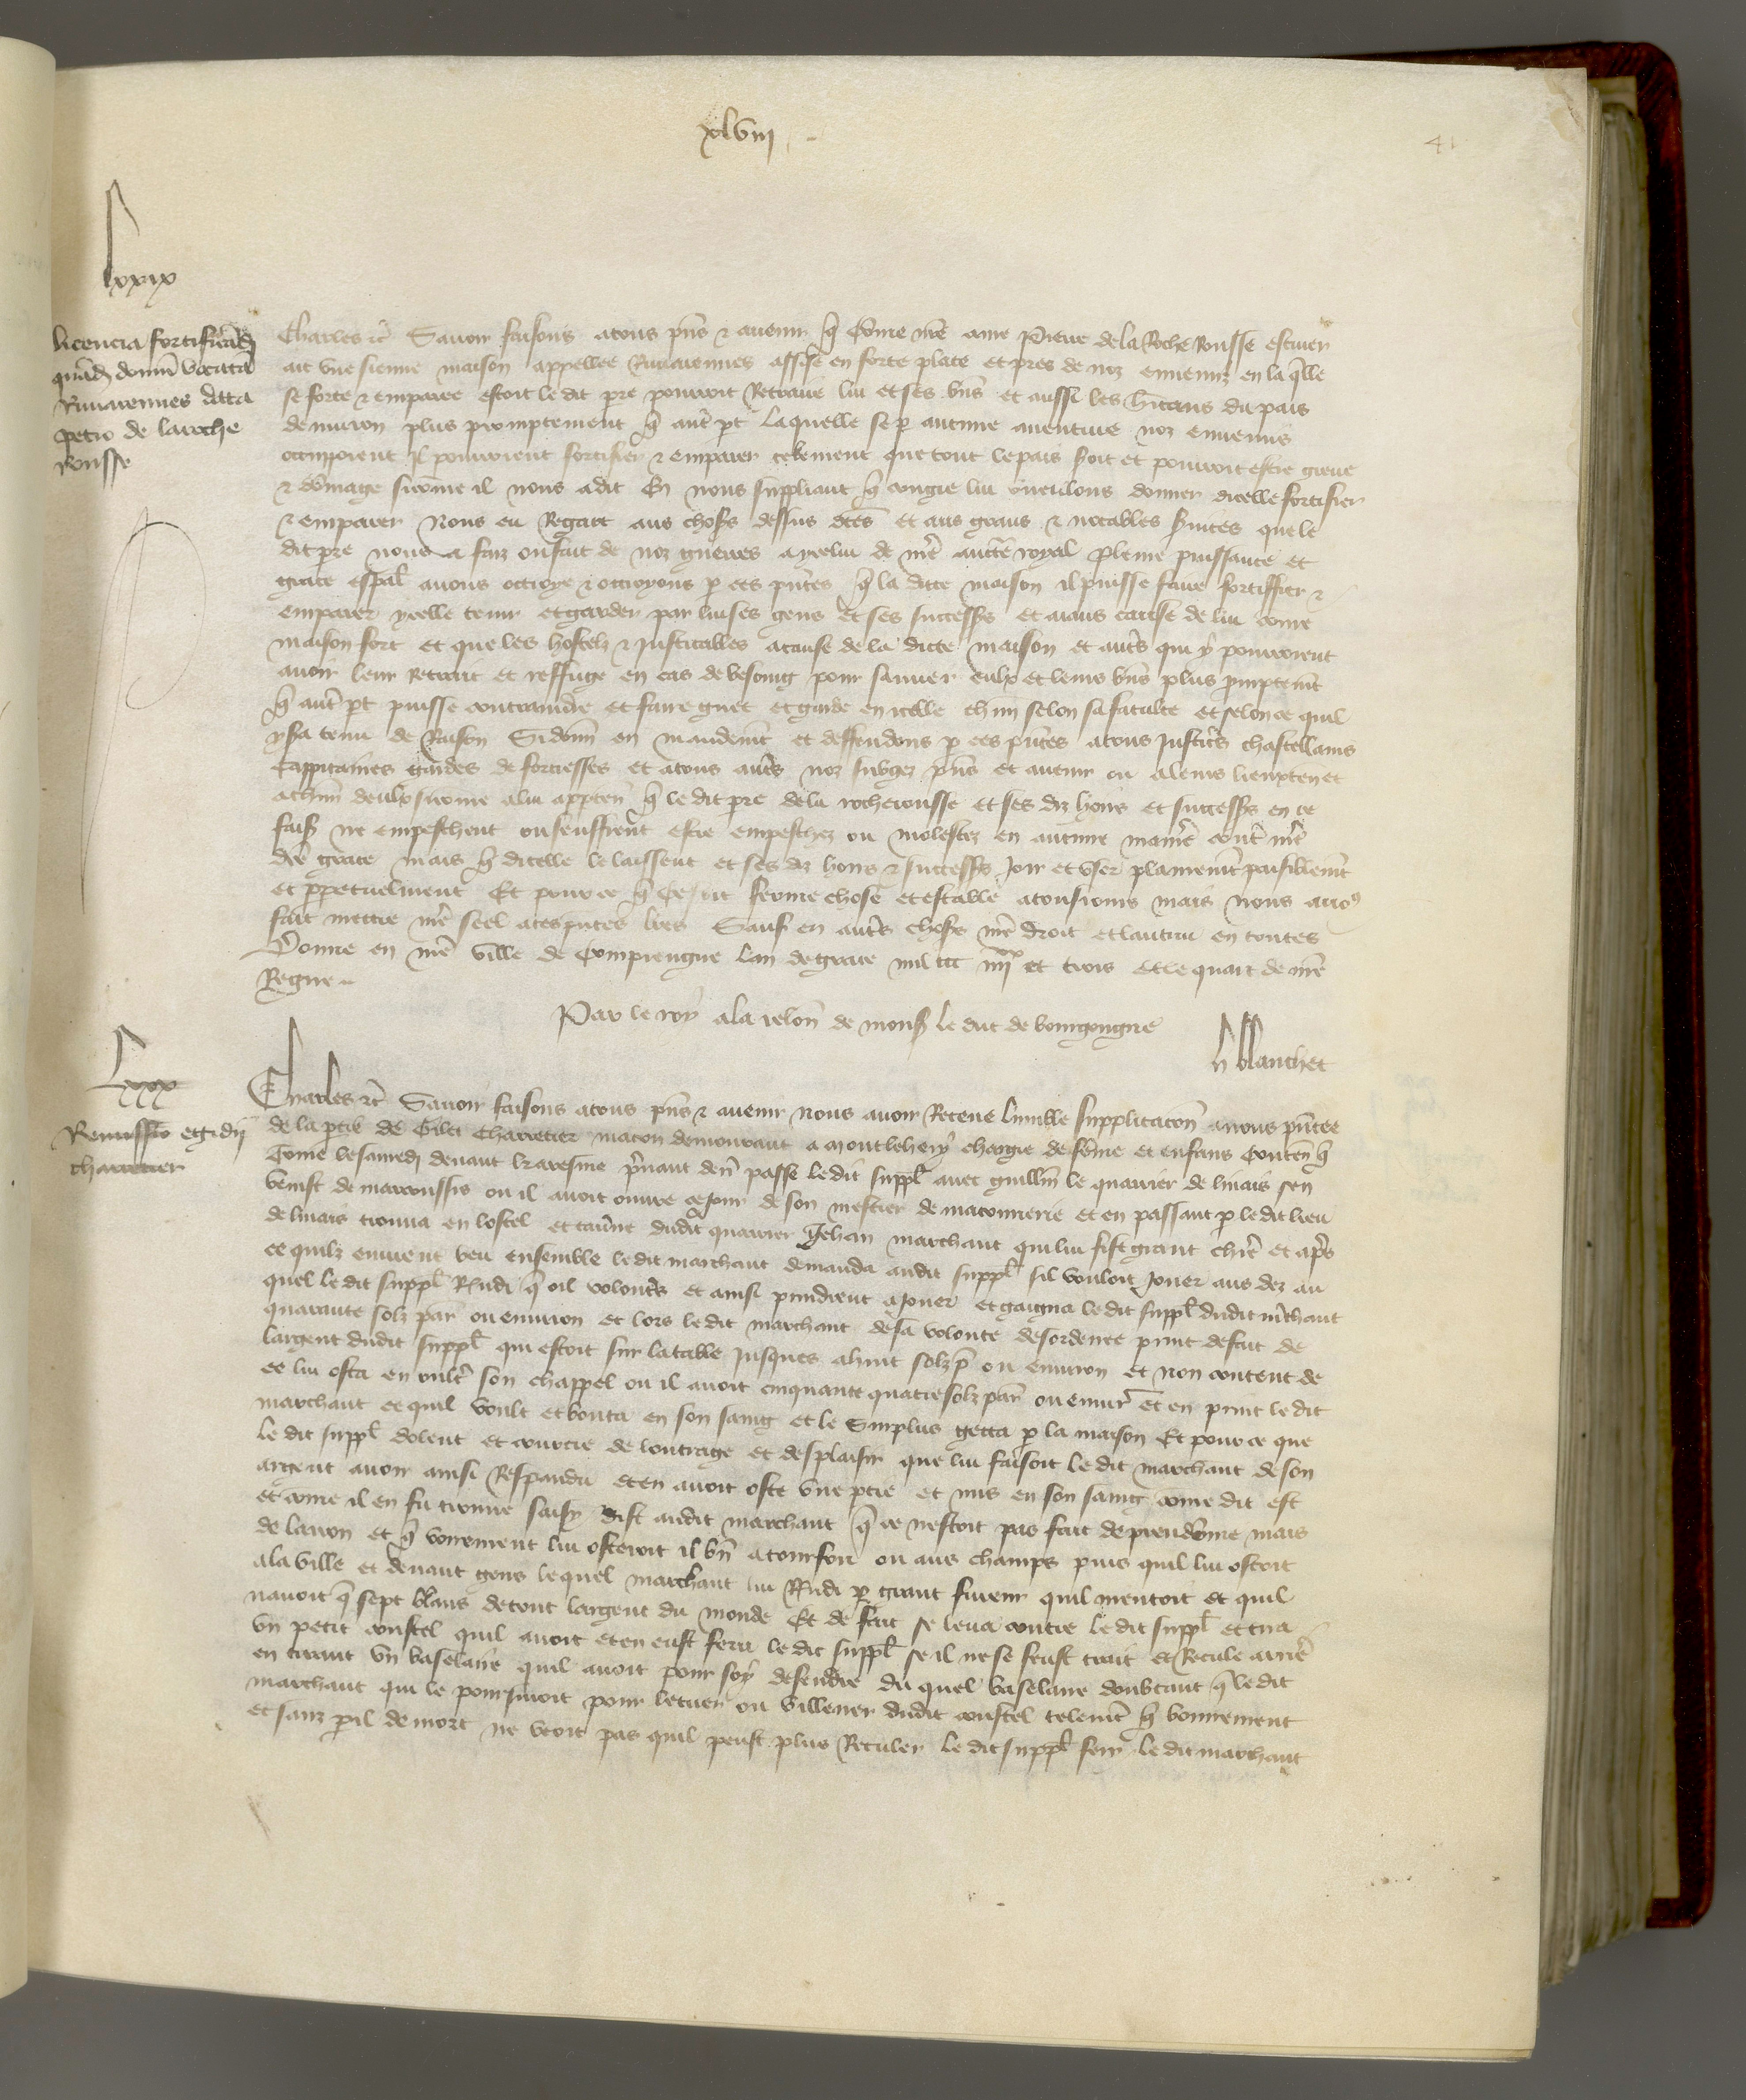 xlviii
41
lxxix
licencia fortificandi
quandam domum vocatam
Rumarennes dicta
petro de laroche
Rousse
Charles etc̃ Savoir faisons atous pñs & avenir q̃ Cõme nr̃e ame Pierre de la Roche Rousse escuier
ait une sienne maison appellee Rumarennes assise en forte place et pres de noz ennemiz en la q̃lle
se forte & emparee estoit le dit pr̃e pourroit Retraire lui et ses bñs et aussi les h̃itans du pais
denviron plus promptement q̃ aut̃ pt laquelle se p aucune aventure noz ennemis
occupoient Il pourroient fortifier & emparer telement que tout le pais seroit et pourroit estre greve
& dõmage sicõme il nous a dit En nous suppliant q̃ congie lui vueillons donner dicelle fortifier
& emparer Nous eu Regart aus choses dessus dc̃es et aus grans & notables s̃vices que le
dit pr̃e nous a faiz ou fait de noz guerres a ycelui de nr̃e auctẽ royal pleine puissance et
grace esp̃al avons octroye & octroyons p ces pñtes q̃ la dicte maison il puisse faire fortiffier &
emparer ycelle tenir et garder par lui ses gens et ses successrs̃ et aians cause de lui cõme
maison fort et que les hostelz & Justicables a cause de la dicte maison et aut̃s qui y pourroient
avoir leur Retrait et reffuge en cas de besoing pour sauver eulx et leurs bñs plus prõptemt̃
q̃ aut̃ pt puisse contraindre et faire guet et garde en icelle chũn selon sa faculte et selon ce quil
y s̃a tenu de Raison Si donñ en mandemt̃ et deffendons p ces pñtes a tous Justic̃s chastellains
Cappitaines gardes de forteresses et a tous aut̃s noz subgez pñs et avenir ou a leurs lieuxten et
a chũn deulx sicõme a lui apptenr̃ q̃ le dit pr̃e de la rocherousse et ses diz hoirs et successrs̃ en ce
fais̃ ne empeschent ou seuffrent estre empeschez ou molestez en aucune manie᷒e cont̃ nr̃e
dc̃e grace mais q̃ dicelle le laissent et ses diz hoirs & successrs̃ Joir et user plainemt̃ paisiblemt̃
et ppetuelment Et pour ce q̃ ce soit ferme chose et estable a tousiours mais nous avõs
fait mettre nr̃e seel a ces pñtes lr̃es Sauf en aut̃s choses nr̃e droit et lautrui en toutes
Donne en nr̃e ville de Compiengne lan de grace mil ccc iiiixx et trois et le quart de nr̃e
Regne
Par le roy a la relon̄ de mons̃ le duc de bourgongne
h blanchet
lxxx
Remissio egidij
charretier
Charles etc̃ Savoir faisons a tous pñs & avenir nous avoir Receue lumble supplicacoñ a nous pñtee
de la ptie de Gilet Charretier macon demourant a montleheri chargie de fem̃e et enfans Contenñ q̃
Come le samedi devant karesme pr̃nant deñ passe ledit suppl̃ avec guillm̃ le quarrier de linais sen
venist de marcoussis ou il avoit ouvre ce Jour de son mestier de maconnerie et en passant p le dit lieu
de linais trouva en lostel et tav̄ne dudit quarrier Jehan marchant qui lui fist grant chie᷒e et ap̃s
ce quilz eurent beu ensemble ledit marchant demanda audit suppl̃ sil vouloit Jouer aus dez au
quel ledit suppl̃ Rñdi q̃ oil volontiers et ainsi prindrent a Jouer et gaigna le dit suppl̃ dudit m̃chant
quarante solz par̃ ou environ et lors le dit marchant de sa volonte desordenee print de fait de
largent dudit suppl̃ qui estoit sur la table Jusques a huit solz p̃ ou environ et non content de
ce lui osta en oult̃ son chappel ou il avoit cinquante quatre solz par̃ ou envir̃ et en print le dit
marchant ce quil voult et bouta en son saing et le Surplus getta p la maison Et pour ce que
le dit suppl̃ dolent et courcie de loutrage et desplaisir que lui faisoit le dit marchant de son
argent avoir ainsi Respandu et en avoit oste une ptie et mis en son saing cõme dit est
et cõme il en fu trouve saisy dist audit marchant q̃ ce nestoit pas fait de preudõme mais
de larron et q̃ voirement lui osteroit il bñ a tourfou ou aus champs puis quil lui ostoit
a la ville et devant gens lequel marchant lui Rñdi p grant fureur quil mentoit et quil
navoit q̃ sept blans de tout largent du monde Et de fait se leva contre le dit suppl̃ et tira
un petit coustel quil avoit et en eust feru le dit suppl̃ se il ne se feust trait et Recule arrie᷒e
en tirant un baselaire quil avoit pour soy defendre du quel baselaire doubtant q̃ le dit
marchant qui le poursuioit pour le tuer ou villener dudit coustel telemt̃ q̃ bonnement
et sanz peril de mort ne veoit pas quil peust plus Reculer le dit suppl̃ feri le dit marchant